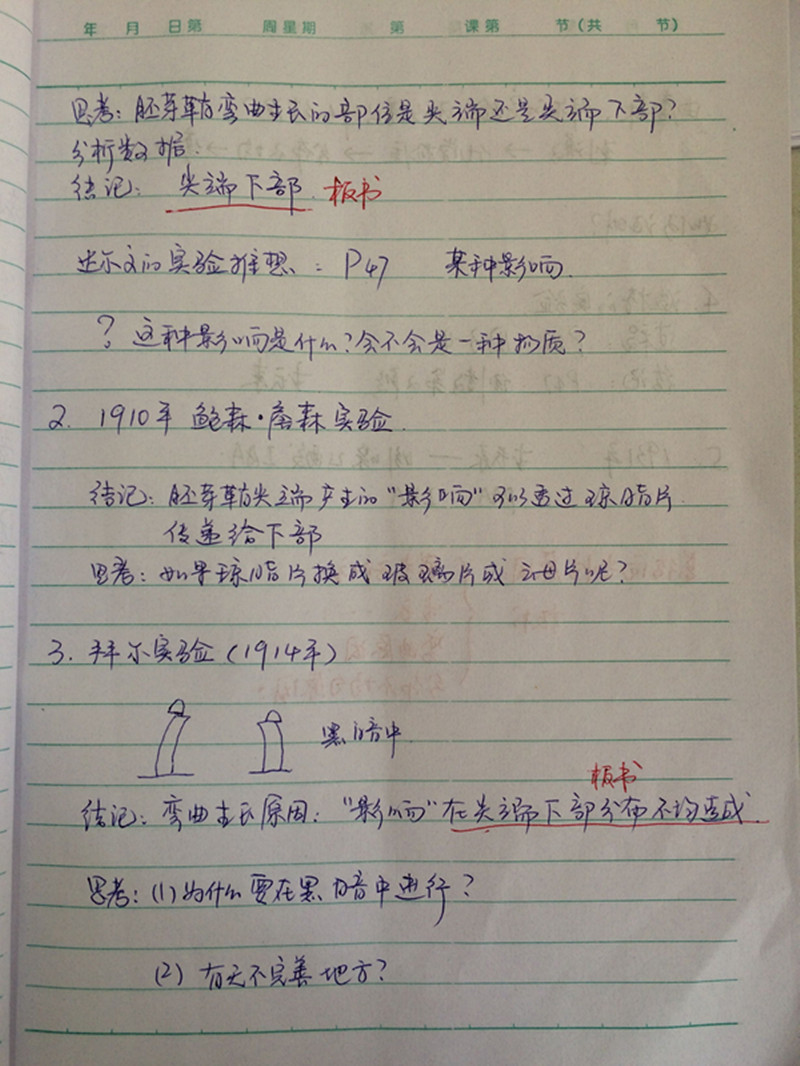 年 月 日第 周星期 第 课第 节(共 节)
思考：胚芽鞘弯曲生长的部位是尖端还是尖端下部？
分析数据：
结论： 尖端下部. 板书
达尔文的实验推想：P47 某种影响.
？这种影响是什么？会不会是一种物质？
2. 1910年 鲍森·詹森实验.
结论：胚芽鞘尖端产生的“影响”可以透过琼脂片
传递给下部
思考：如果琼脂片换成玻璃片或云母片呢？
3. 拜尔实验(1914年)
黑暗中
板书
结论：弯曲生长原因：“影响”在尖端下部分布不均造成.
思考：(1)为什么要在黑暗中进行？
(2) 有无不完善地方？